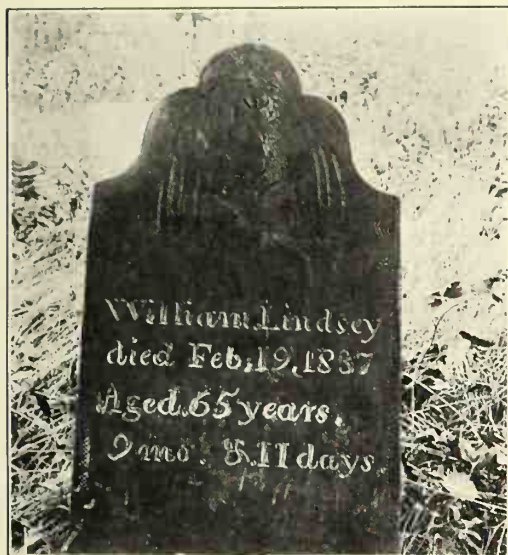 William Lindsey
died Feb. 19, 1837
Aged 65 years.
9 mo. & 11 days.